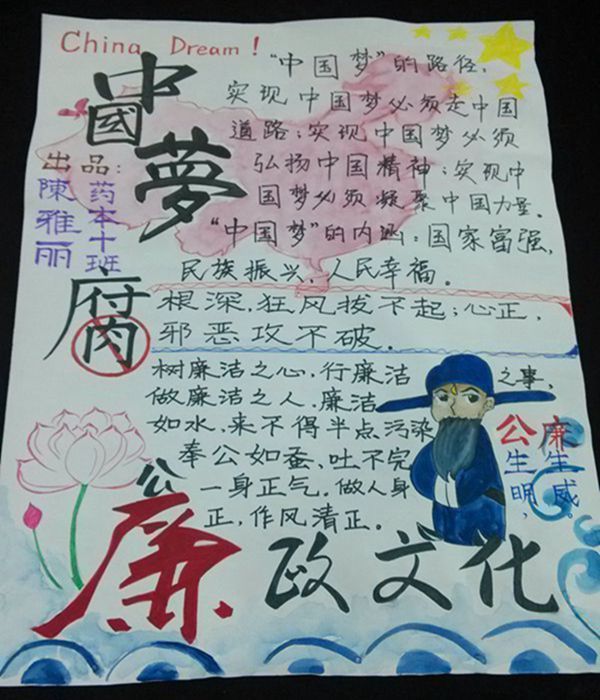 China Dream!
中國夢
"中国梦"的路径,
实现中国梦必须走中国
道路;实现中国梦必须
弘扬中国精神;实现中
国梦必须凝聚中国力量。
"中国梦"的内涵:国家富强,
民族振兴,人民幸福。
出品:
药本十班
陳雅丽
腐
根深,狂风拔不起;心正,
邪恶攻不破.
树廉洁之心,行廉洁之事,
做廉洁之人,廉洁
如水,来不得半点污染
奉公如蚕,吐不完
一身正气。做人身
正,作风清正。
公生明,
廉生威。
公
廉政文化